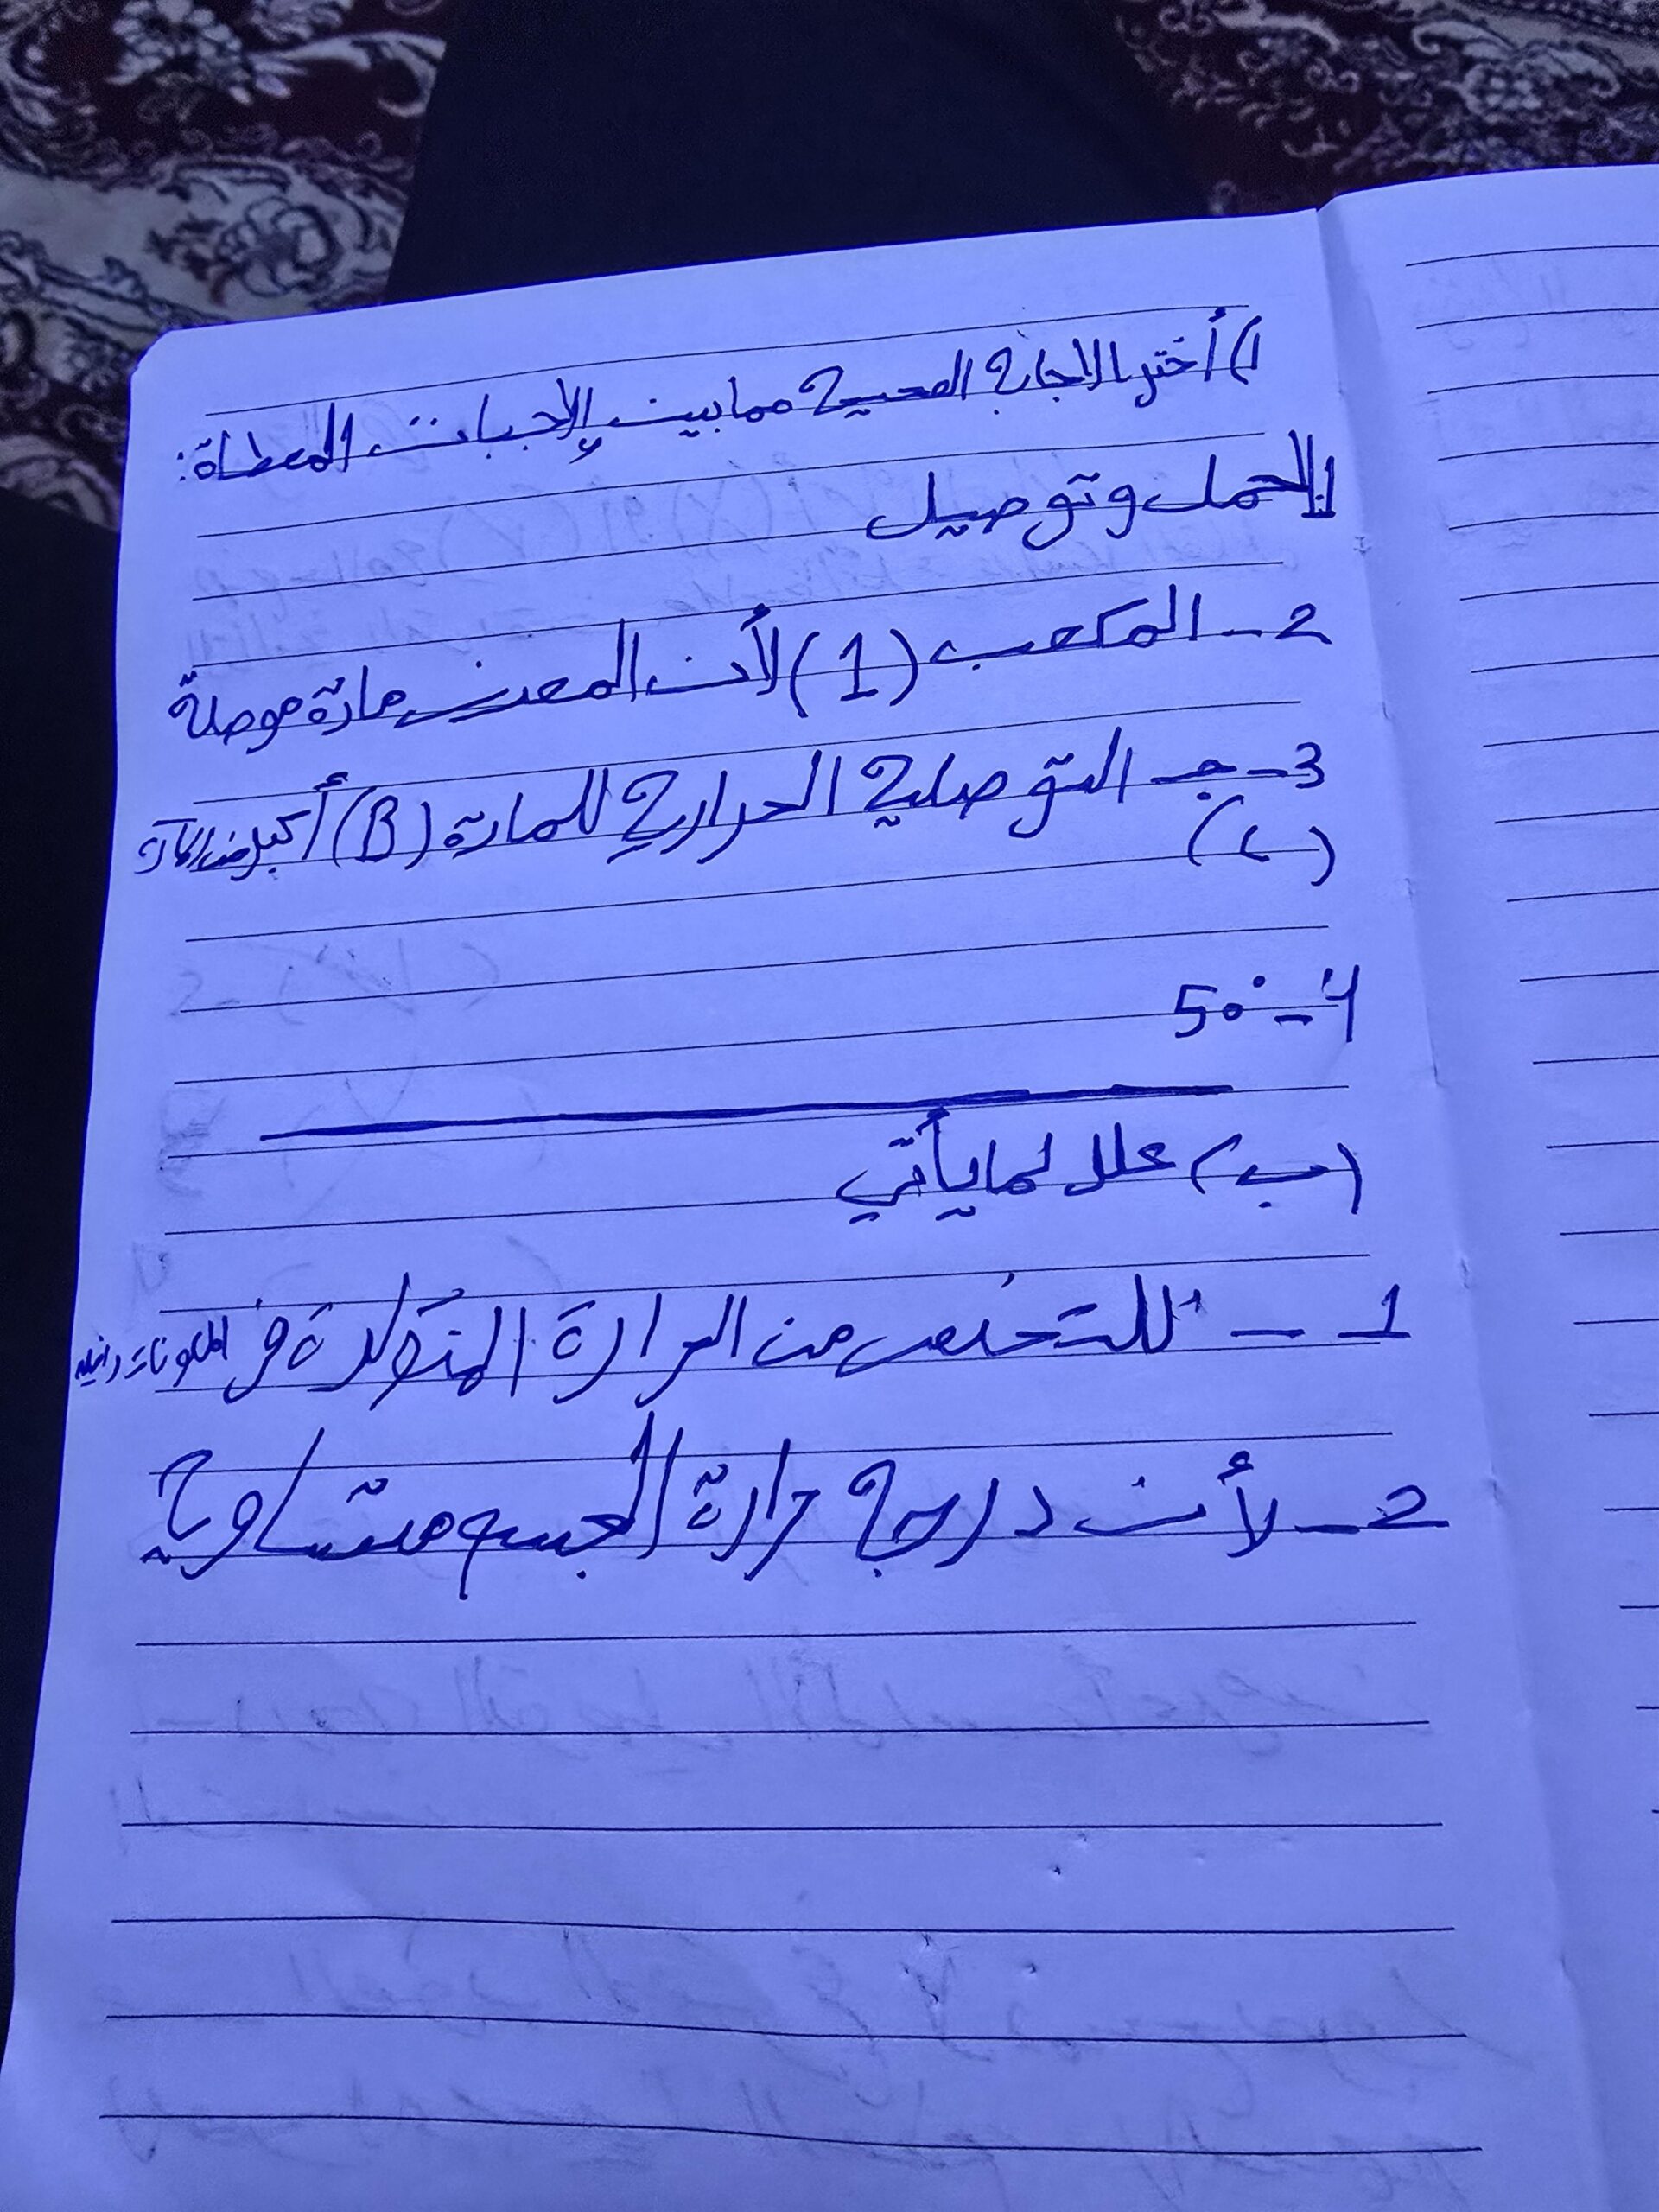 أ) أختر الاجابة الصحيحة مما بين الإجبات المعطاة:
1- الحمل وتوصيل
2- المكعب (1) لأن المعدن مادة موصلة
3- جـ التوصلية الحرارية للمادة (B) أكبر من المادة
(C)
4- 50°
(ب) علل لما يأتي
1- للتخلص من الحرارة المتولدة في المكونات
2- لأن درجة حرارة الجسم متساوية